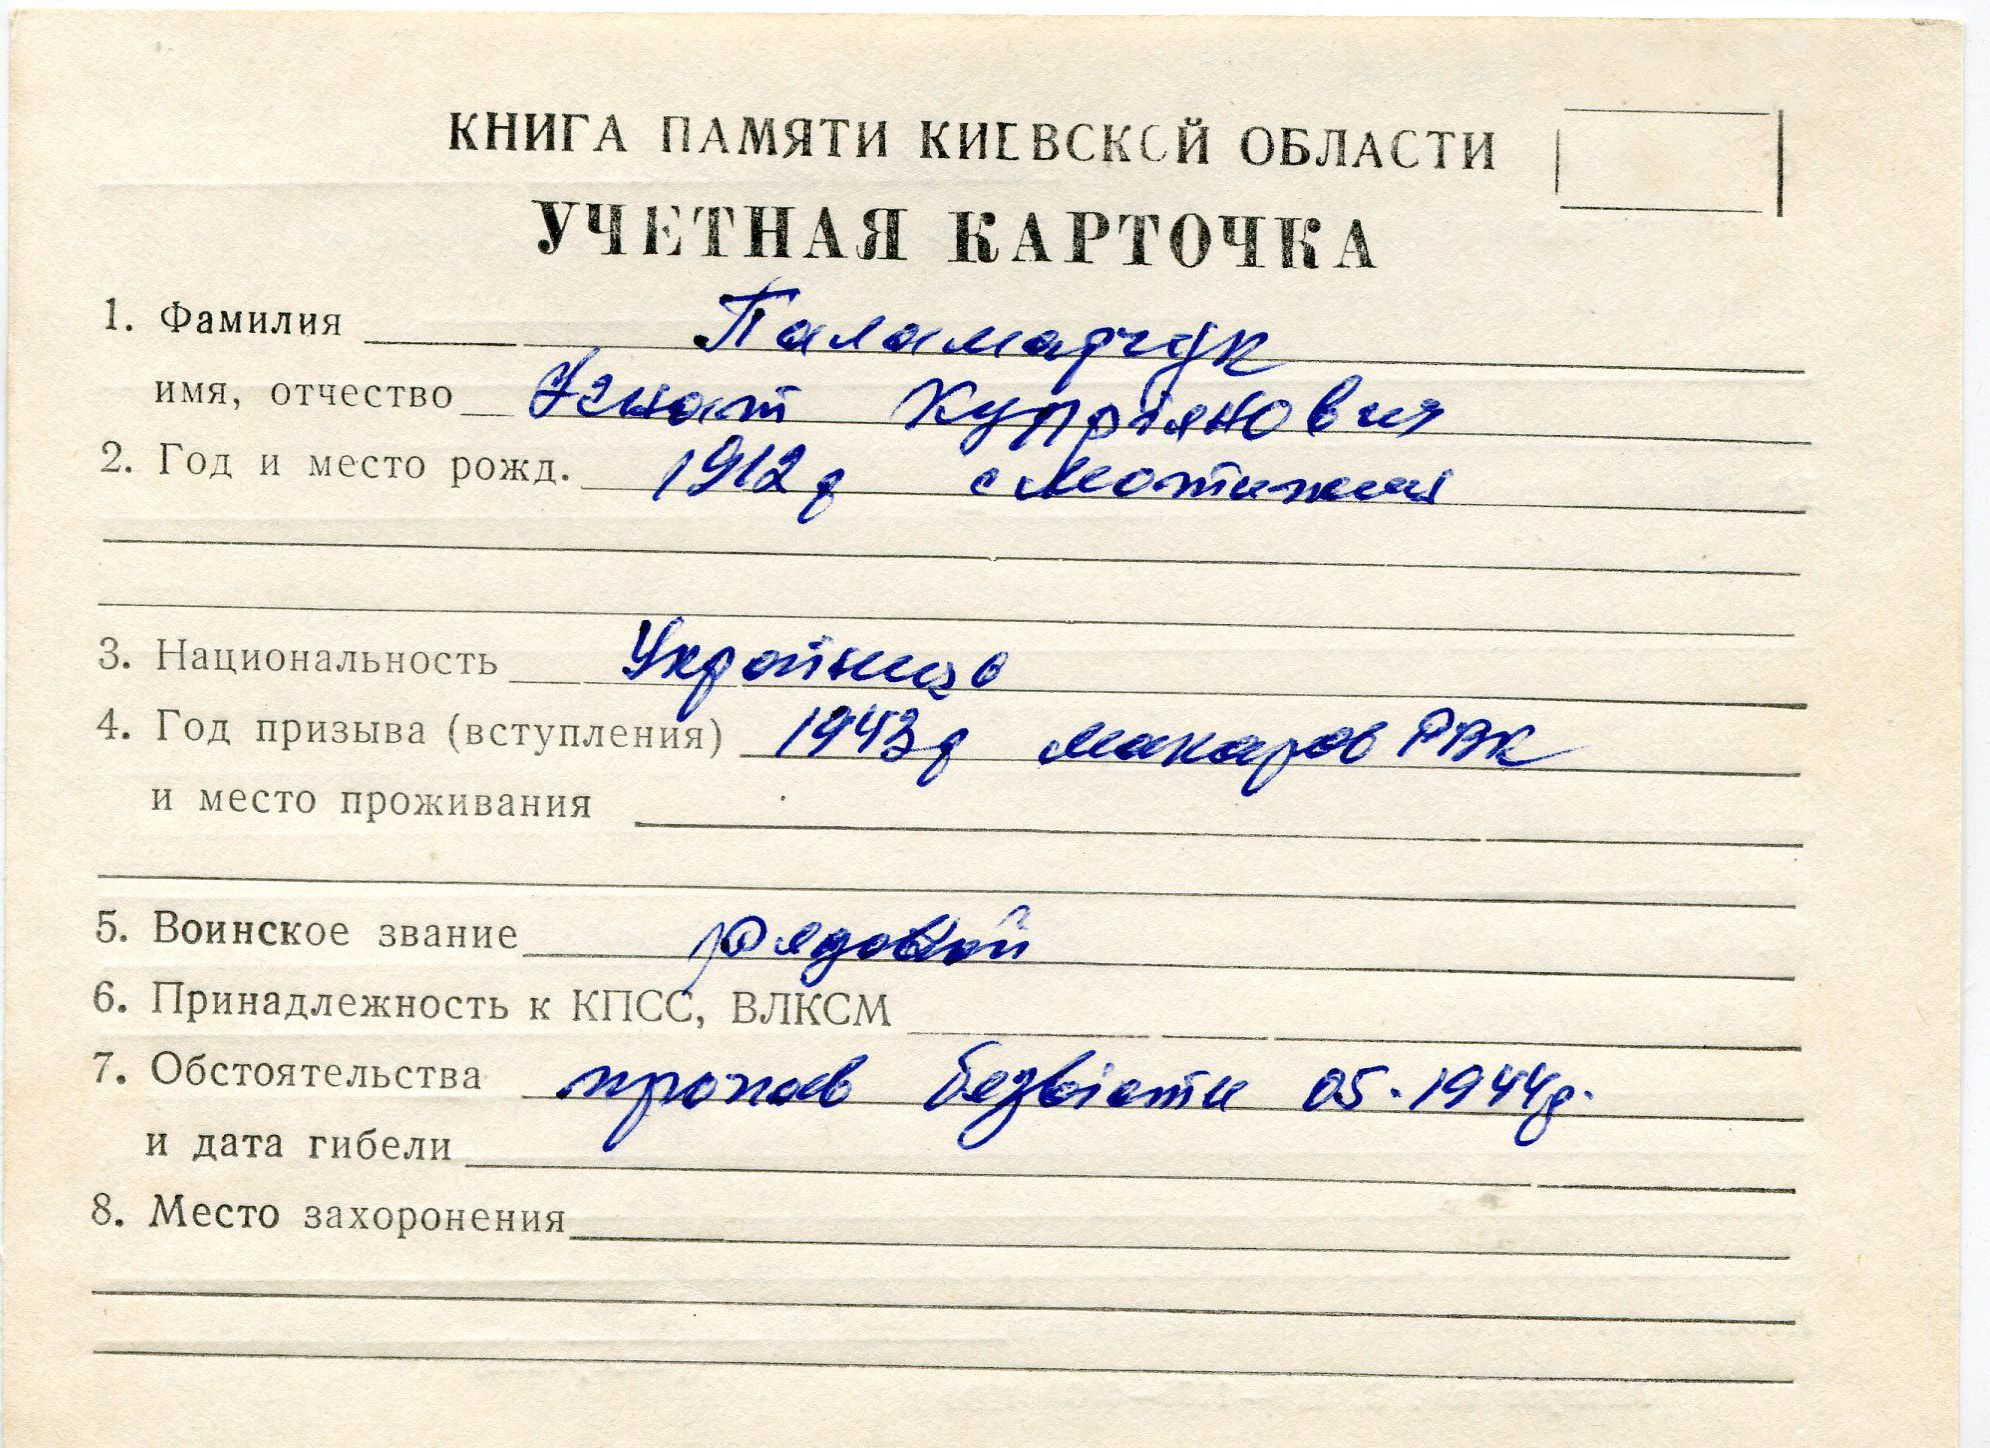 КНИГА ПАМЯТИ КИЕВСКОЙ ОБЛАСТИ
УЧЕТНАЯ КАРТОЧКА
1. Фамилия Паламарчук
имя, отчество Ігнат Купріянович
2. Год и место рожд. 1912р с Мотижин
3. Национальность Українець
4. Год призыва (вступления) 1943р Макаров РВК
и место проживания
5. Воинское звание рядовой
6. Принадлежность к КПСС, ВЛКСМ
7. Обстоятельства пропав безвісти 05.1944р.
и дата гибели
8. Место захоронения